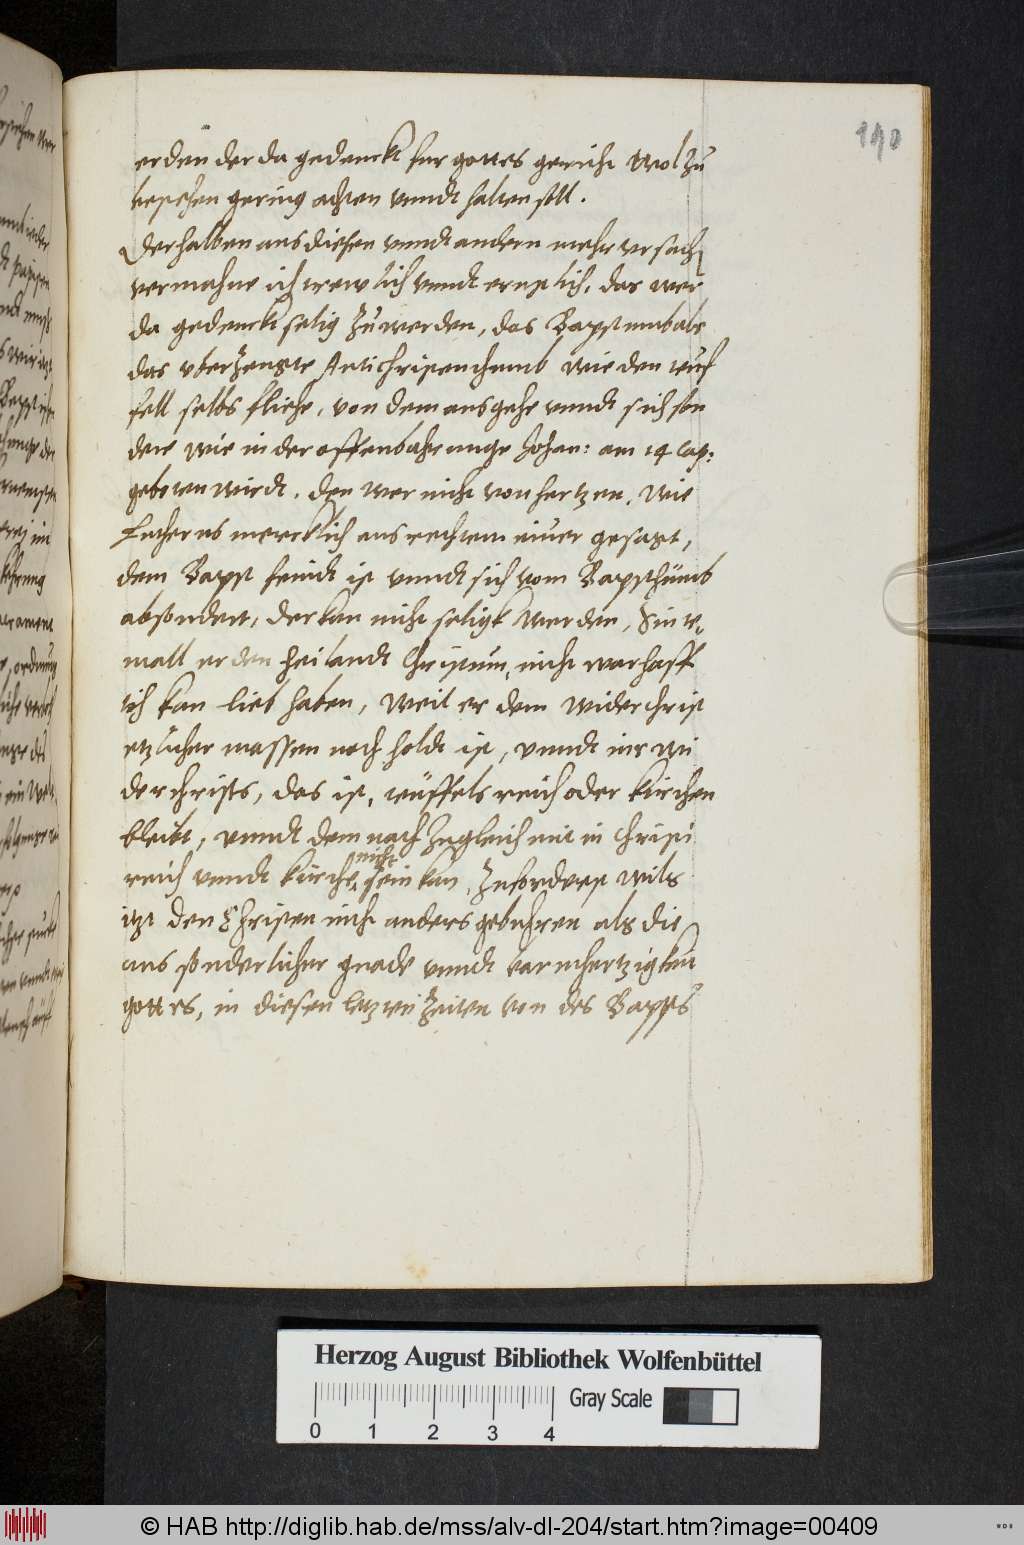 190
erden der da gedenckt fur gottes gericht wol zu
bestehen gering achten vnndt halten soll.
Derhalben aus diesen vnndt andern mehr vrsach
vermahne ich trewlich vnndt ernstlich, das wer
da gedenckt selig zu werden, das Bapstumb als
das vberzeugte Antichristenthumb wie den teuf
fell selbs fliehe, von dem ausgehe vnndt sich son
dere wie in der offenbahrunge Johan: am 14 Cap:
geboten wirdt. Den wer nicht von hertzen, wie
Lutherus mercklich aus rechtem eiuer gesagt,
dem Bapst feindt ist vnndt sich vom Bapsthumb
absondert, der kan nicht seligk werden, Sinte
mall er den heilandt Christum, nicht warhaff
tich kan lieb haben, weil er dem widerchrist
etzlicher massen noch holdt ist, vnndt ins wi
derchrists, das ist, teuffels reich oder kirchen
bleibt, vnndt dem nach zugleich mit in Christi
reich vnndt kirche nicht sein kan, Zuforderst wils
itzt den Christen nicht anders gebuhren als die
aus sonderlicher gnade vnndt barmhertzigkeit
gottes, in diesen letzten Zeiten von des Bapsts
Herzog August Bibliothek Wolfenbüttel
Gray Scale
0 1 2 3 4
© HAB http://diglib.hab.de/mss/alv-dl-204/start.htm?image=00409